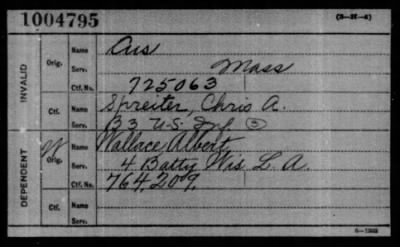 1004795
(3-3K-4)
INVALID
Orig.
Name
Aus
Serv.
Mass
Ctf. No.
725063
Ctf.
Name
Spreiter, Chris A.
Serv.
B 3 U.S. Inf ③
DEPENDENT
W
Orig.
Name
Wallace, Albert
Serv.
4 Batty Wis L.A.
Ctf. No.
764,209.
Ctf.
Name
Serv.